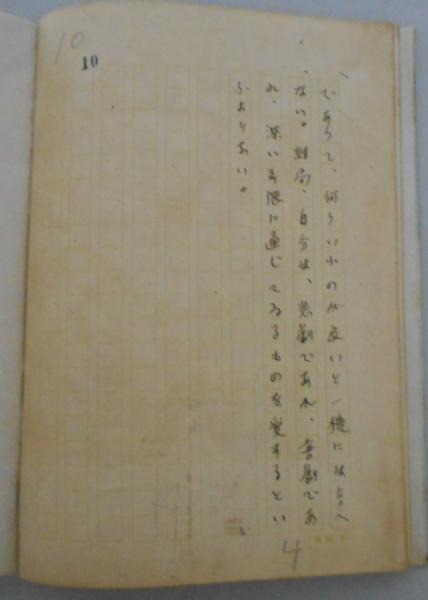 10
10
であつて、何ういふのが良いと一概には言へ
ない。結局、自分は、悲劇であれ、喜劇であ
れ、深いものに通じてゐるものを愛するとい
ふよりない。
4